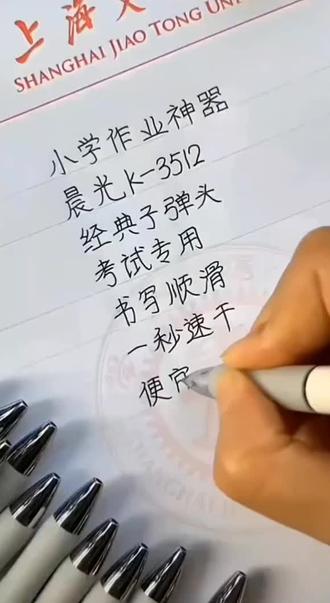 上海交
SHANGHAI JIAO TONG UN
小学作业神器
晨光K-3512
经典子弹头
考试专用
书写顺滑
一秒速干
便宜